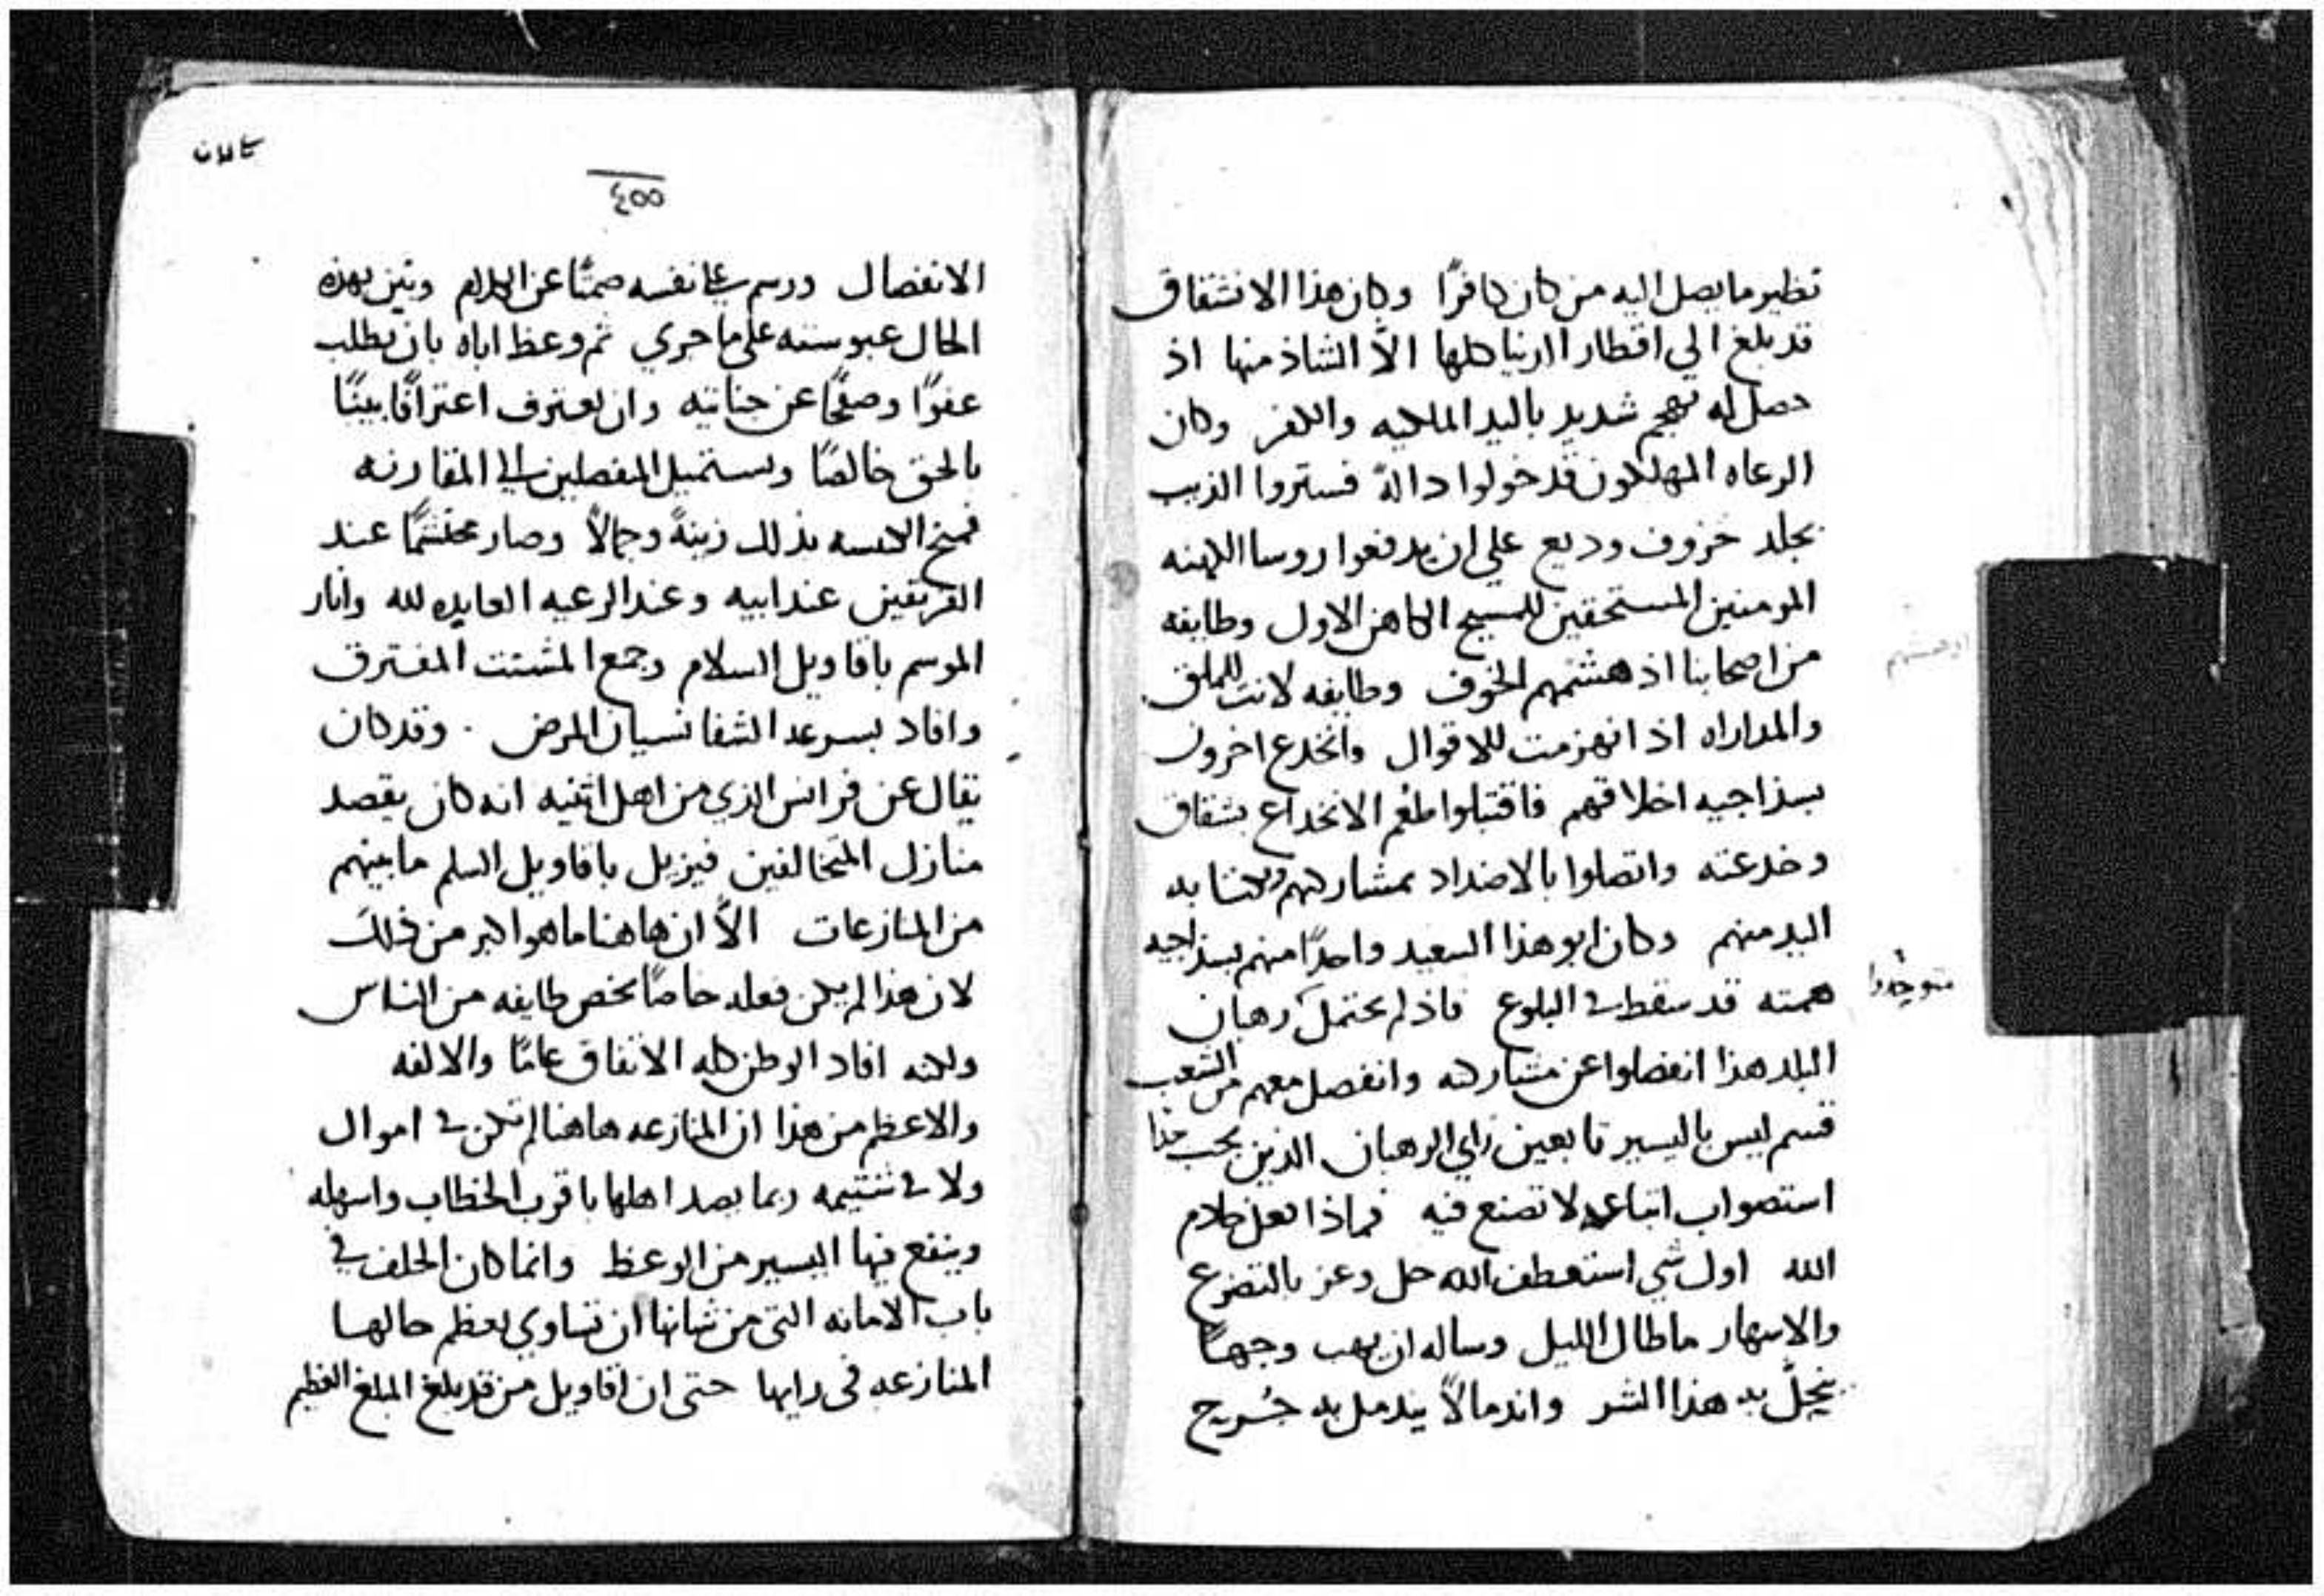 نظير ما يصل اليه من كان كافرًا وكان هذا الانشقاق
قد بلغ الي اقطار الدنيا كلها الاَّ الشاذ منها اذ
حصل له تهجم شديد باليد الملكيه والكفر وكان
الرعاه المهلكون قد خولوا دالةً فستروا الذيب
بجلد خروف وديع علي ان يدفعوا روسا الكهنه
المومنين المستحقين للمسيح الكاهن الاول وطايفه
من اصحابنا اذ هشتهم الخوف وطايفه لانت للملق
والمداراه اذ انهزمت للاقوال وانخدع اخرون
بسذاجيه اخلاقهم فاقتبلوا طغم الانخداع بشقاق
وخدعته واتصلوا بالاضداد بمشاركتهم
اليد منهم وكان ابو هذا السعيد واحدًا منهم بسذاجيه
متوجدوا
همته قد سقط في البلوع فاذ لم يحتمل رهبان
البلد هذا انفصلوا عن مشاركته وانفصل معهم من الشعب
قسم ليس باليسير تابعين راي الرهبان الذين يجب
استصواب اتباعه لا تصنع فيه فماذا فعل كلام
الله اول شي استعطف الله جل وعز بالتضرع
والاسهار ما طال الليل وساله ان يهب وجهًا
ينحلّ به هذا الشر واندمالاً يندمل به جُريح
كلان
٤٥٥
الانفصال ورسم علي نفسه صمتًا عن الكلام وتبين بهذه
الحال عبوسته علي ما جري ثم وعظ اباه بان يطلب
عفوًا وصفحًا عن جنايته وان يعترف اعترافًا بينًا
بالحق خالصًا ويستميل المنفصلين الي المقارنه
فمنح الكنيسه بذلك زينةً وجمالاً وصار محتشمًا عند
الفريقين عند ابيه وعند الرعيه العايده لله وانار
الموسم باقاويل السلام وجمع المشتت المفترق
وافاد بسرعه الشفا نسيان المرض . وقد كان
يقال عن فرانس الذي من اهل اثنيه انه كان يقصد
منازل المتخالفين فيزيل باقاويل السلم ما بينهم
من المنازعات الاَّ ان هاهنا ما هو اكبر من ذلك
لان هذا لم يكن فعله خاصًا يخص طايفه من الناس
ولكنه افاد الوطن كله الاتفاق عامًا والالفه
والاعظم من هذا ان المنازعه هاهنا لم تكن في اموال
ولا في شتيمه ربما يصد اهلها باقرب الخطاب واسهله
وينفع فيها اليسير من الوعظ وانما كان الخلف في
باب الامانه التي من شانها ان تساوي بعظم حالها
المنازعه في رايها حتى ان اقاويل من قد بلغ المبلغ العظيم